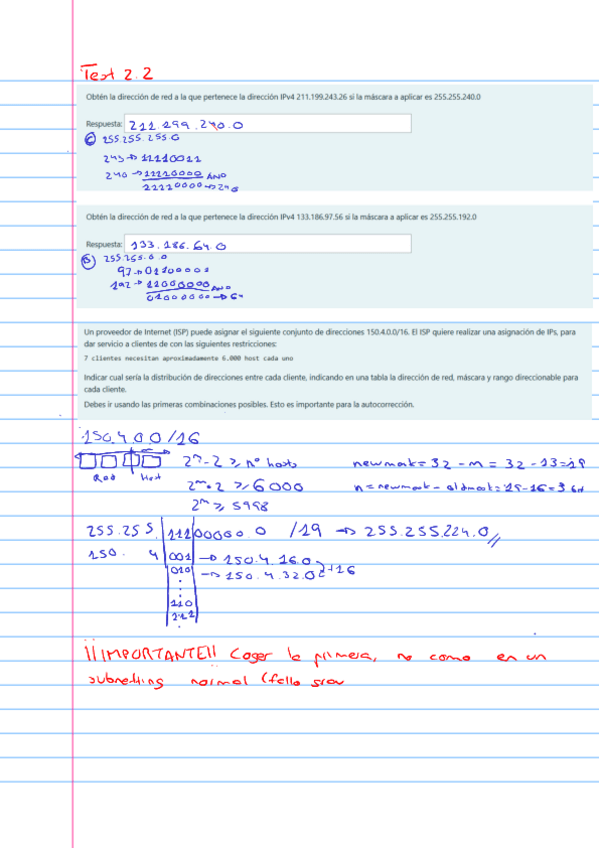 Test 2.2
Obtén la dirección de red a la que pertenece la dirección IPv4 211.199.243.26 si la máscara a aplicar es 255.255.240.0
Respuesta: 211.299.240.0
C 255.255.255.0
243 → 11110011
240 → 11110000 AND
11110000 → 240
Obtén la dirección de red a la que pertenece la dirección IPv4 133.186.97.56 si la máscara a aplicar es 255.255.192.0
Respuesta: 133.186.64.0
B 255.255.0.0
97 → 01100001
192 → 11000000 AND
01000000 → 64
Un proveedor de Internet (ISP) puede asignar el siguiente conjunto de direcciones 150.4.0.0/16. El ISP quiere realizar una asignación de IPs, para
dar servicio a clientes de con las siguientes restricciones:
7 clientes necesitan aproximadamente 6.000 host cada uno
Indicar cual sería la distribución de direcciones entre cada cliente, indicando en una tabla la dirección de red, máscara y rango direccionable para
cada cliente.
Debes ir usando las primeras combinaciones posibles. Esto es importante para la autocorrección.
150.4.0.0/16
Red Host 2^n - 2 ≥ nº hosts newmask = 32 - m = 32 - 13 = 19
2^m - 2 ≥ 6000 n = newmask - oldmask = 19 - 16 = 3 bit
2^m ≥ 5998
255.255.11100000.0 /19 → 255.255.224.0
150. 4 001 → 150.4.16.0
010 → 150.4.32.0 +16
110
111
¡¡IMPORTANTE!! Coger la primera, no como en un
subnetting normal (fallo